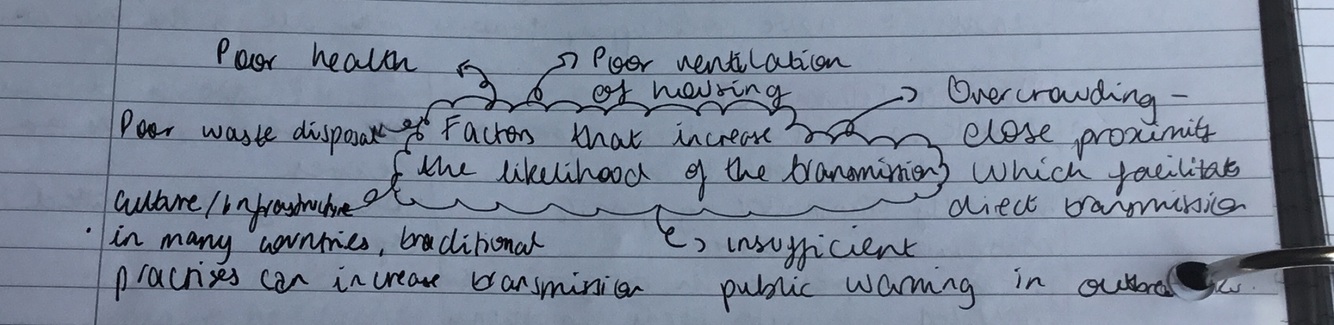 Poor health
Poor ventilation
of housing
Overcrowding -
close proximity
which facilitates
direct transmission
Poor waste disposal
Factors that increase
the likelihood of the transmission
Culture/infrastructure
in many countries, traditional
practises can increase transmission
insufficient
public warning in